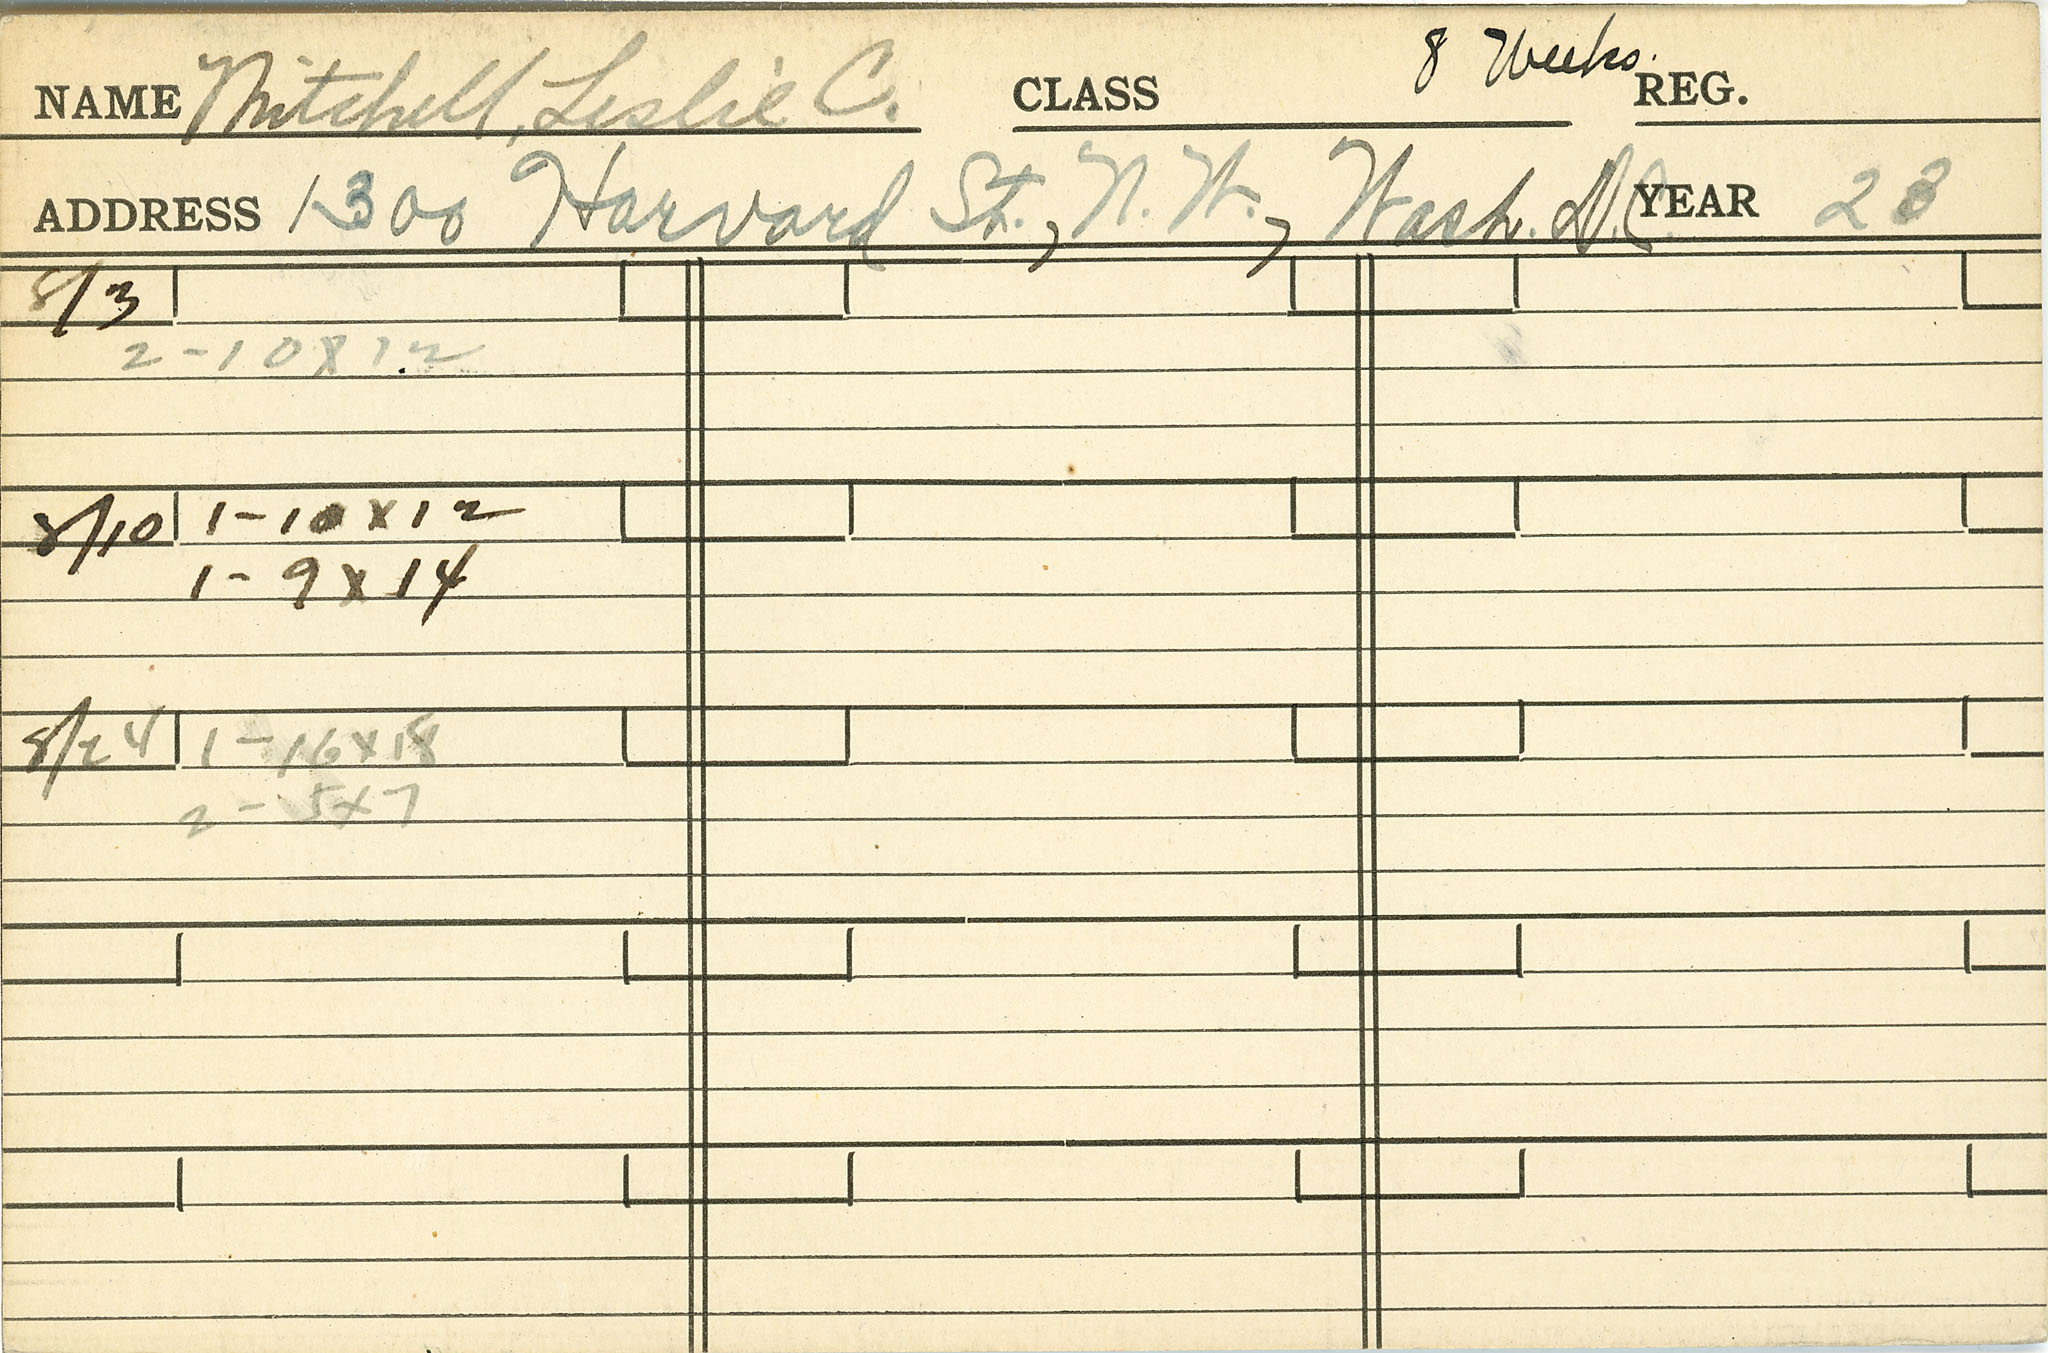 NAME Mitchell, Leslie C. CLASS 8 Weeks. REG.
ADDRESS 1300 Harvard St., N.W., Wash. D.C. YEAR
8/3
2-10x12
8/10 1-10x12
1-9x14
8/24 1-16x18
2-5x7